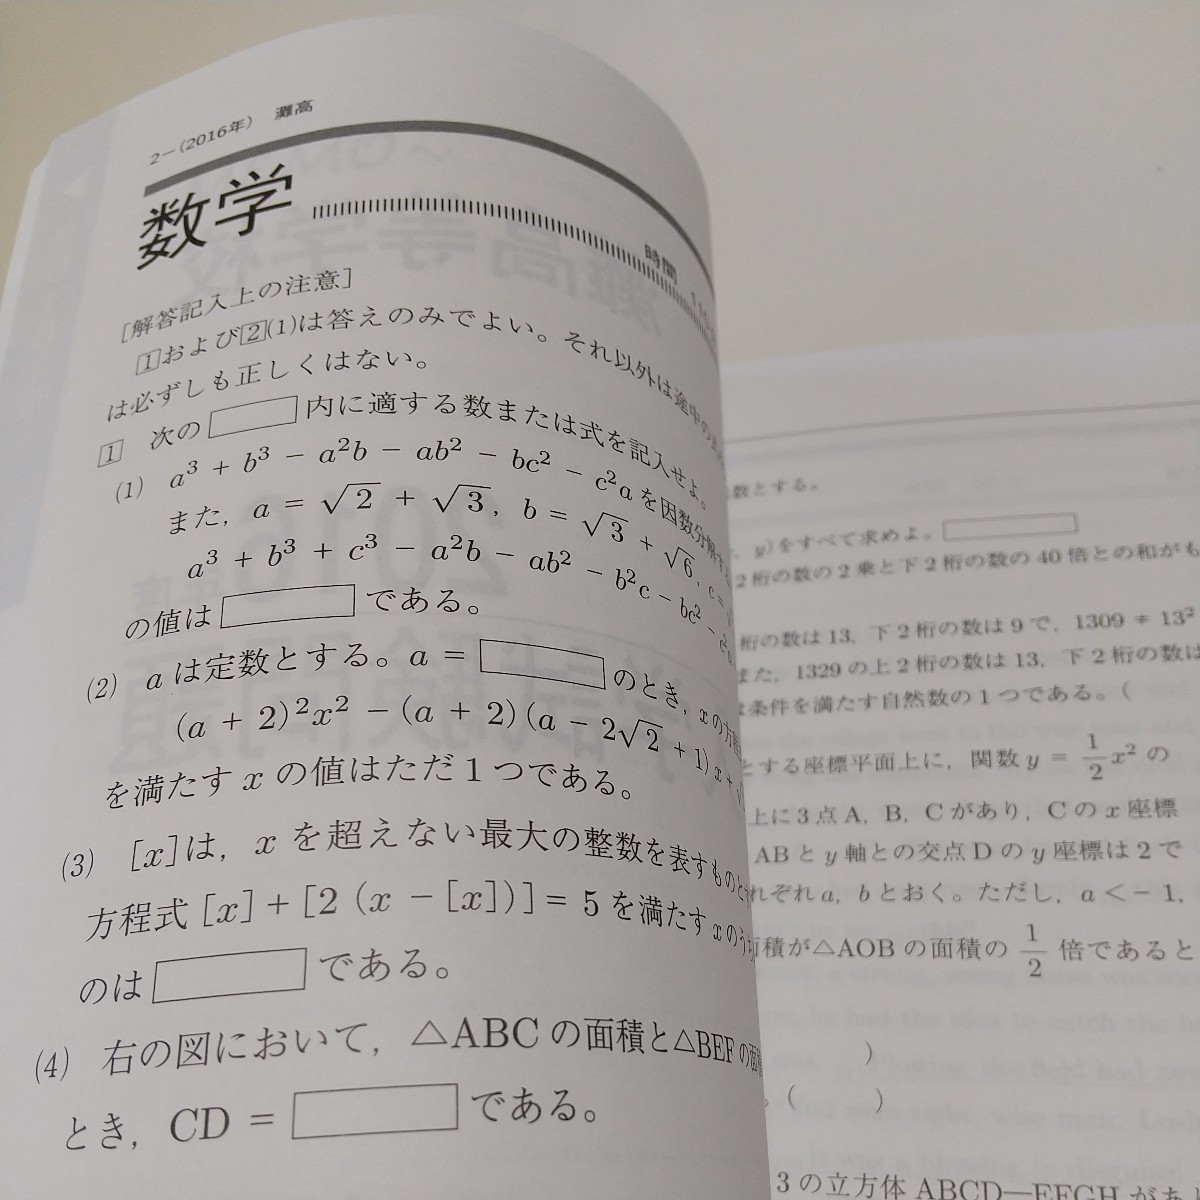 2－(2016年) 灘高
数学
時間
[解答記入上の注意]
1および2(1)は答えのみでよい。それ以外は途中の
は必ずしも正しくはない。
1 次の 内に適する数または式を記入せよ。
(1) a³ + b³ − a²b − ab² − bc² − c²a を因数分解する
また, a = √2 + √3, b = √3 + √6, c =
a³ + b³ + c³ − a²b − ab² − b²c − bc² −
の値は である。
(2) a は定数とする。a = のとき, x の方程
(a + 2)²x² − (a + 2)(a − 2√2 + 1)x +
を満たす x の値はただ1つである。
(3) [x]は, x を超えない最大の整数を表すものと
方程式 [x] + [2 (x − [x])] = 5 を満たす x のうち
のは である。
(4) 右の図において, △ABC の面積と△BEF の面積
とき, CD = である。
数とする。
y)をすべて求めよ。
2桁の数の2乗と下2桁の数の40倍との和がも
桁の数は13, 下2桁の数は9で, 1309 ≠ 13²
また, 1329の上2桁の数は13, 下2桁の数は
条件を満たす自然数の1つである。(
とする座標平面上に, 関数 y = 1/2 x² の
上に3点A, B, Cがあり, Cの x 座標
ABと y 軸との交点Dの y 座標は2で
れぞれ a, b とおく。ただし, a < − 1,
面積が△AOBの面積の 1/2 倍であると
)
。( )
3の立方体 ABCD—EFGH があ